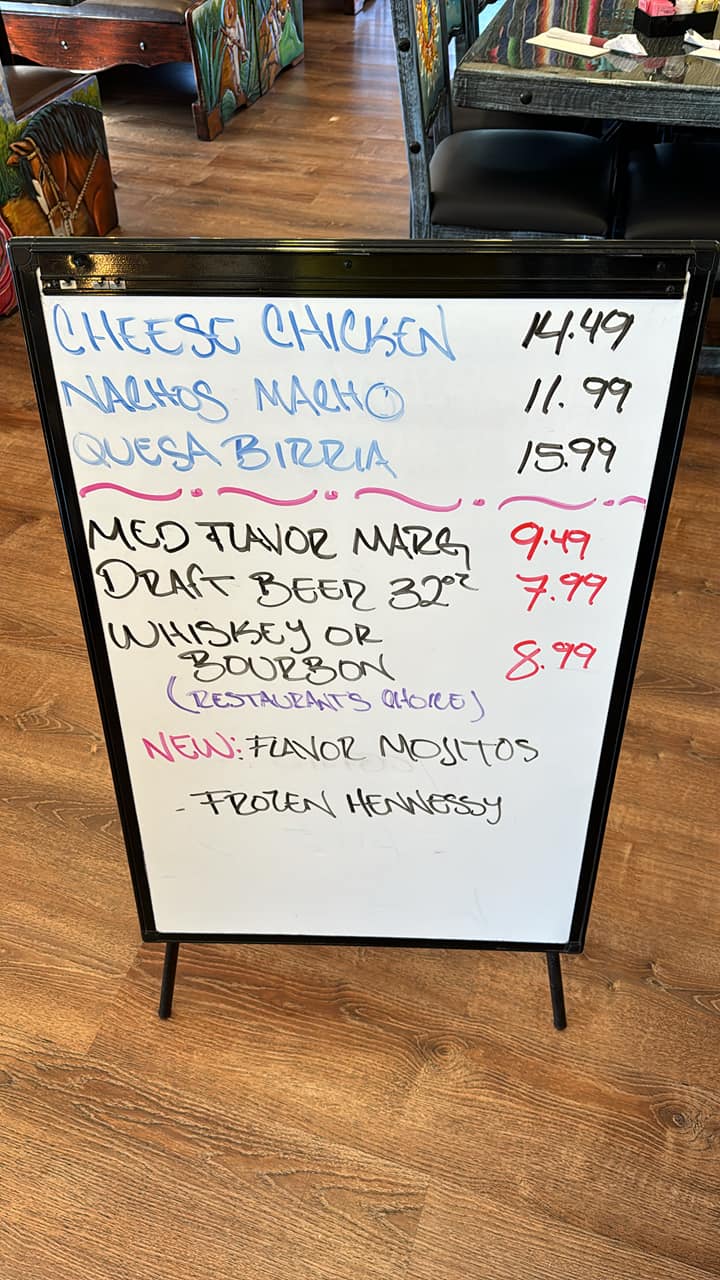 CHEESE CHICKEN 14.49
NACHOS MACHO 11.99
QUESA BIRRIA 15.99
MED FLAVOR MARG 9.49
DRAFT BEER 32oz 7.99
WHISKEY OR
BOURBON 8.99
(RESTAURANT'S CHOICE)
NEW: FLAVOR MOJITOS
- FROZEN HENNESSY